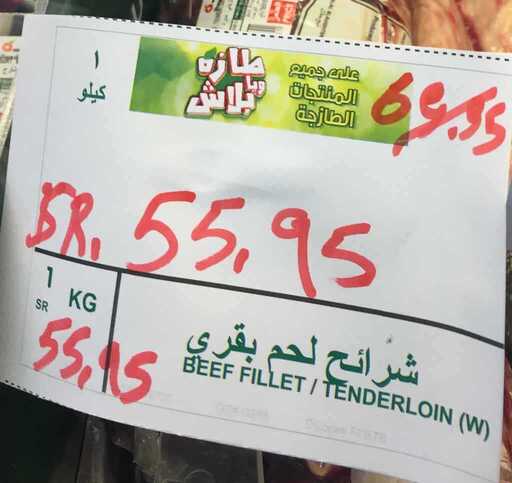 ١
كيلو
طازه
ويا
بلاش
على جميع
المنتجات
الطازجة
69.95
SR. 55.95
1 KG
SR
55.95
شرائح لحم بقري
BEEF FILLET / TENDERLOIN (W)